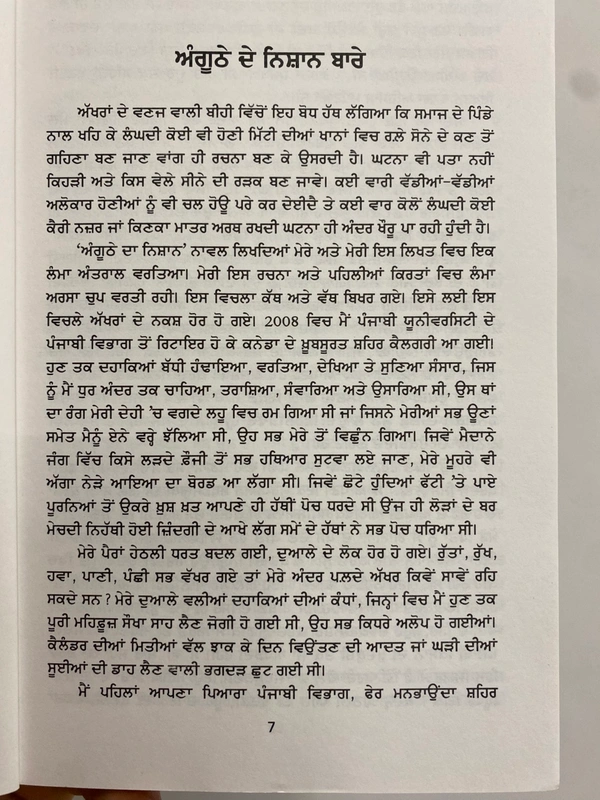 ਅੰਗੂਠੇ ਦੇ ਨਿਸ਼ਾਨ ਬਾਰੇ
ਅੱਖਰਾਂ ਦੇ ਵਣਜ ਵਾਲੀ ਬੀਹੀ ਵਿੱਚੋਂ ਇਹ ਬੋਧ ਹੱਥ ਲੱਗਿਆ ਕਿ ਸਮਾਜ ਦੇ ਪਿੰਡੇ
ਨਾਲ ਖਹਿ ਕੇ ਲੰਘਦੀ ਕੋਈ ਵੀ ਹੋਣੀ ਮਿੱਟੀ ਦੀਆਂ ਖਾਨਾਂ ਵਿਚ ਰਲੇ ਸੋਨੇ ਦੇ ਕਣ ਤੋਂ
ਗਹਿਣਾ ਬਣ ਜਾਣ ਵਾਂਗ ਹੀ ਰਚਨਾ ਬਣ ਕੇ ਉਸਰਦੀ ਹੈ। ਘਟਨਾ ਵੀ ਪਤਾ ਨਹੀਂ
ਕਿਹੜੀ ਅਤੇ ਕਿਸ ਵੇਲੇ ਸੀਨੇ ਦੀ ਰੜਕ ਬਣ ਜਾਵੇ। ਕਈ ਵਾਰੀ ਵੱਡੀਆਂ-ਵੱਡੀਆਂ
ਅਲੋਕਾਰ ਹੋਣੀਆਂ ਨੂੰ ਵੀ ਚਲ ਹੋਊ ਪਰੇ ਕਰ ਦੇਈਦੈ ਤੇ ਕਈ ਵਾਰ ਕੋਲੋਂ ਲੰਘਦੀ ਕੋਈ
ਕੈਰੀ ਨਜ਼ਰ ਜਾਂ ਕਿਣਕਾ ਮਾਤਰ ਅਰਥ ਰਖਦੀ ਘਟਨਾ ਹੀ ਅੰਦਰ ਖੌਰੂ ਪਾ ਰਹੀ ਹੁੰਦੀ ਹੈ।
'ਅੰਗੂਠੇ ਦਾ ਨਿਸ਼ਾਨ' ਨਾਵਲ ਲਿਖਦਿਆਂ ਮੇਰੇ ਅਤੇ ਮੇਰੀ ਇਸ ਲਿਖਤ ਵਿਚ ਇਕ
ਲੰਮਾ ਅੰਤਰਾਲ ਵਰਤਿਆ। ਮੇਰੀ ਇਸ ਰਚਨਾ ਅਤੇ ਪਹਿਲੀਆਂ ਕਿਰਤਾਂ ਵਿਚ ਲੰਮਾ
ਅਰਸਾ ਚੁਪ ਵਰਤੀ ਰਹੀ। ਇਸ ਵਿਚਲਾ ਕੱਥ ਅਤੇ ਵੱਥ ਬਿਖਰ ਗਏ। ਇਸੇ ਲਈ ਇਸ
ਵਿਚਲੇ ਅੱਖਰਾਂ ਦੇ ਨਕਸ਼ ਹੋਰ ਹੋ ਗਏ। 2008 ਵਿਚ ਮੈਂ ਪੰਜਾਬੀ ਯੂਨੀਵਰਸਿਟੀ ਦੇ
ਪੰਜਾਬੀ ਵਿਭਾਗ ਤੋਂ ਰਿਟਾਇਰ ਹੋ ਕੇ ਕਨੇਡਾ ਦੇ ਖ਼ੂਬਸੂਰਤ ਸ਼ਹਿਰ ਕੈਲਗਰੀ ਆ ਗਈ।
ਹੁਣ ਤਕ ਦਹਾਕਿਆਂ ਬੱਧੀ ਹੰਢਾਇਆ, ਵਰਤਿਆ, ਦੇਖਿਆ ਤੇ ਸੁਣਿਆ ਸੰਸਾਰ, ਜਿਸ
ਨੂੰ ਮੈਂ ਧੁਰ ਅੰਦਰ ਤਕ ਚਾਹਿਆ, ਤਰਾਸ਼ਿਆ, ਸੰਵਾਰਿਆ ਅਤੇ ਉਸਾਰਿਆ ਸੀ, ਉਸ ਥਾਂ
ਦਾ ਰੰਗ ਮੇਰੀ ਦੇਹੀ 'ਚ ਵਗਦੇ ਲਹੂ ਵਿਚ ਰਮ ਗਿਆ ਸੀ ਜਾਂ ਜਿਸਨੇ ਮੇਰੀਆਂ ਸਭ ਊਣਾਂ
ਸਮੇਤ ਮੈਨੂੰ ਏਨੇ ਵਰ੍ਹੇ ਝੱਲਿਆ ਸੀ, ਉਹ ਸਭ ਮੇਰੇ ਤੋਂ ਵਿਛੁੰਨ ਗਿਆ। ਜਿਵੇਂ ਮੈਦਾਨੇ
ਜੰਗ ਵਿੱਚ ਕਿਸੇ ਲੜਦੇ ਫ਼ੌਜੀ ਤੋਂ ਸਭ ਹਥਿਆਰ ਸੁਟਵਾ ਲਏ ਜਾਣ, ਮੇਰੇ ਮੂਹਰੇ ਵੀ
ਅੱਗਾ ਨੇੜੇ ਆਇਆ ਦਾ ਬੋਰਡ ਆ ਲੱਗਾ ਸੀ। ਜਿਵੇਂ ਛੋਟੇ ਹੁੰਦਿਆਂ ਫੱਟੀ 'ਤੇ ਪਾਏ
ਪੂਰਨਿਆਂ ਤੋਂ ਉਕਰੇ ਖ਼ੁਸ਼ ਖ਼ਤ ਆਪਣੇ ਹੀ ਹੱਥੀਂ ਪੋਚ ਧਰਦੇ ਸੀ ਉਂਜ ਹੀ ਲੋੜਾਂ ਦੇ ਬਰ
ਮੇਚਦੀ ਨਿਹੱਥੀ ਹੋਈ ਜ਼ਿੰਦਗੀ ਦੇ ਆਖੇ ਲੱਗ ਸਮੇਂ ਦੇ ਹੱਥਾਂ ਨੇ ਸਭ ਪੋਚ ਧਰਿਆ ਸੀ।
ਮੇਰੇ ਪੈਰਾਂ ਹੇਠਲੀ ਧਰਤ ਬਦਲ ਗਈ, ਦੁਆਲੇ ਦੇ ਲੋਕ ਹੋਰ ਹੋ ਗਏ। ਰੁੱਤਾਂ, ਰੁੱਖ,
ਹਵਾ, ਪਾਣੀ, ਪੰਛੀ ਸਭ ਵੱਖਰ ਗਏ ਤਾਂ ਮੇਰੇ ਅੰਦਰ ਪਲਦੇ ਅੱਖਰ ਕਿਵੇਂ ਸਾਵੇਂ ਰਹਿ
ਸਕਦੇ ਸਨ ? ਮੇਰੇ ਦੁਆਲੇ ਵਲੀਆਂ ਦਹਾਕਿਆਂ ਦੀਆਂ ਕੰਧਾਂ, ਜਿਨ੍ਹਾਂ ਵਿਚ ਮੈਂ ਹੁਣ ਤਕ
ਪੂਰੀ ਮਹਿਫ਼ੂਜ਼ ਸੌਖਾ ਸਾਹ ਲੈਣ ਜੋਗੀ ਹੋ ਗਈ ਸੀ, ਉਹ ਸਭ ਕਿਧਰੇ ਅਲੋਪ ਹੋ ਗਈਆਂ।
ਕੈਲੰਡਰ ਦੀਆਂ ਮਿਤੀਆਂ ਵੱਲ ਝਾਕ ਕੇ ਦਿਨ ਵਿਉਂਤਣ ਦੀ ਆਦਤ ਜਾਂ ਘੜੀ ਦੀਆਂ
ਸੂਈਆਂ ਦੀ ਡਾਹ ਲੈਣ ਵਾਲੀ ਭਗਦੜ ਛੁਟ ਗਈ ਸੀ।
ਮੈਂ ਪਹਿਲਾਂ ਆਪਣਾ ਪਿਆਰਾ ਪੰਜਾਬੀ ਵਿਭਾਗ, ਫੇਰ ਮਨਭਾਉਂਦਾ ਸ਼ਹਿਰ
7